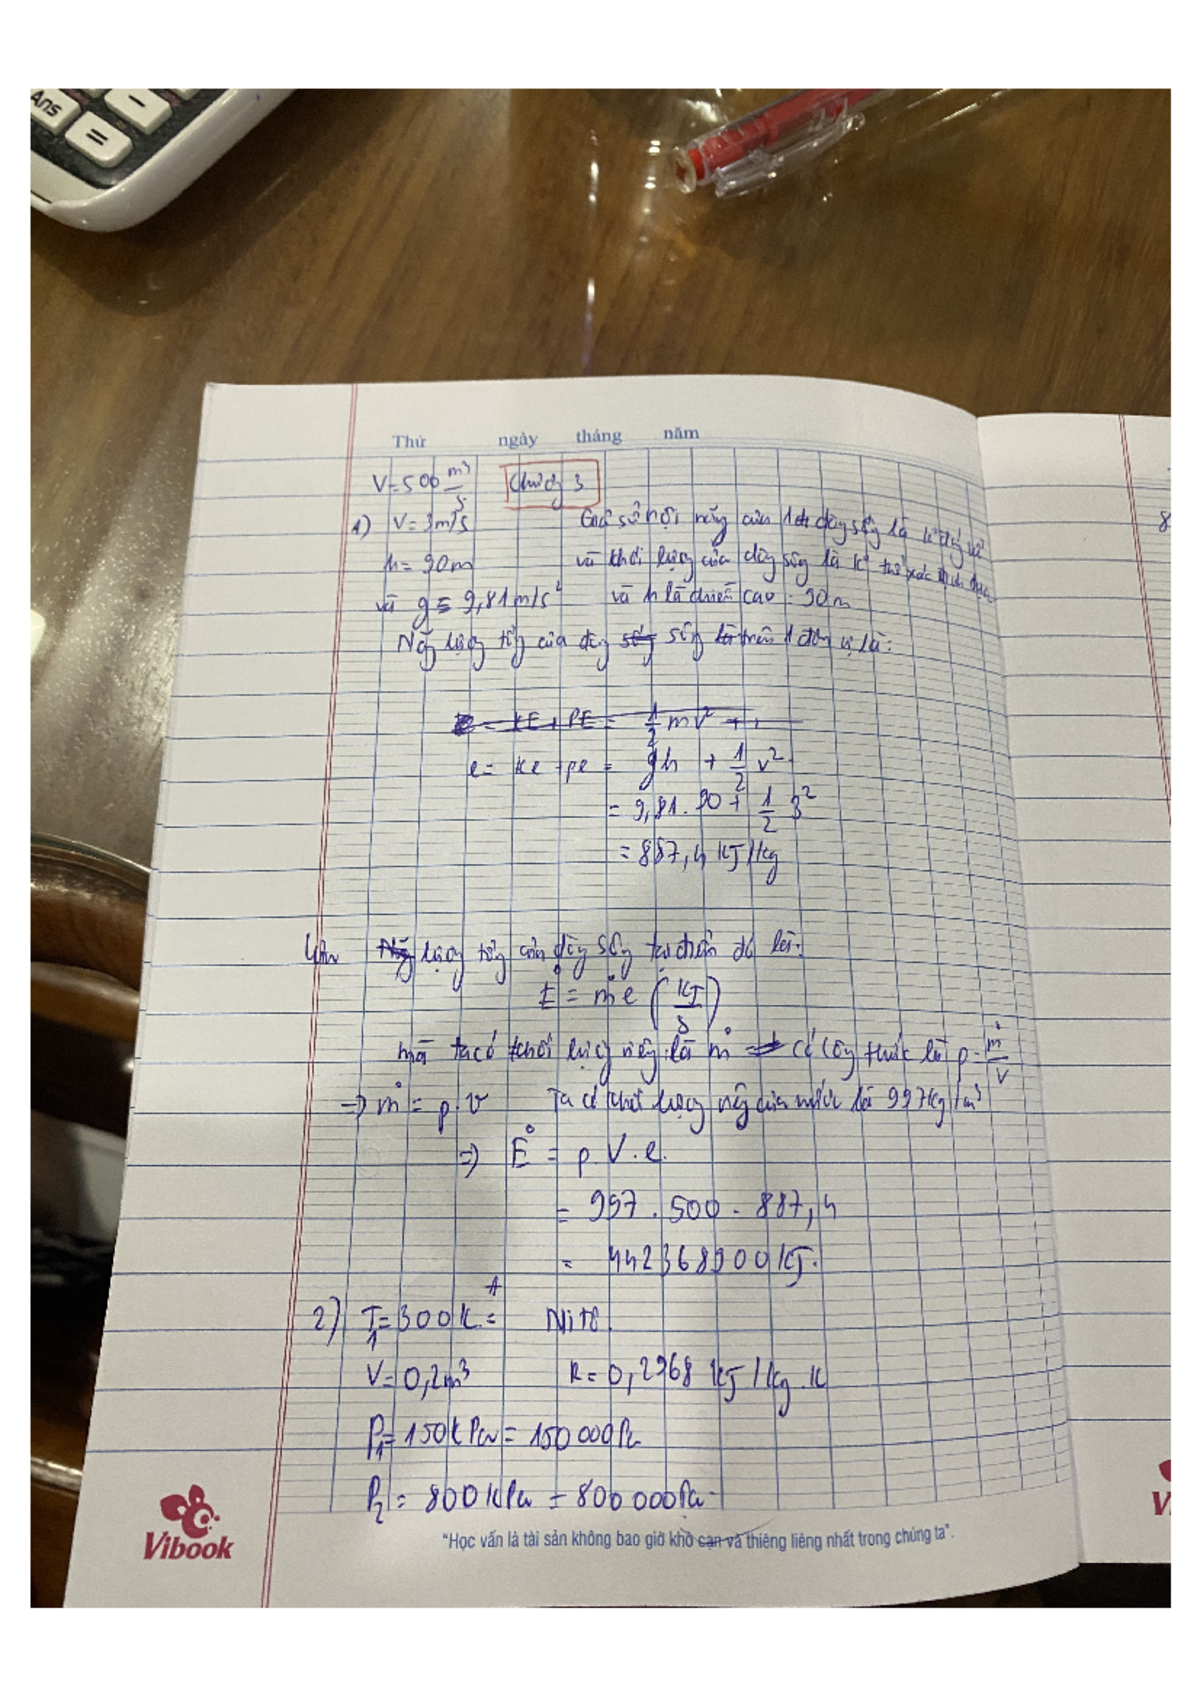 Ans
−
=
Thứ ngày tháng năm
V=500 m³/s Chương 3
1) V=3m/s Giả sử nội năng của 1 dòng sông là
h=90m và khối lượng của dòng sông là
và g=9,81m/s² và h là chiều cao = 90m
Năng lượng tổng của dòng sông trên 1 đơn vị là:
E = KE + PE = 1/2 mv² +
e = ke + pe = gh + 1/2 v²
= 9,81.90 + 1/2 3²
= 887,4 kJ/kg
lượng tổng của dòng sông là:
Ė = ṁe (kJ/s)
mà ta có khối lượng riêng là ṁ có công thức là ρ=ṁ/V
=> ṁ = ρ.v Ta có khối lượng riêng của nước là 997kg/m³
=> Ė = ρ.V.e
= 997.500.887,4
= 442368900 kJ.
2) T₁=300K= Nitơ
V=0,2m³ R=0,2968 kJ/kg.K
P₁=150kPa=150000Pa
P₂=800kPa=800000Pa
Vibook
"Học vấn là tài sản không bao giờ khô cạn và thiêng liêng nhất trong chúng ta".
8
V